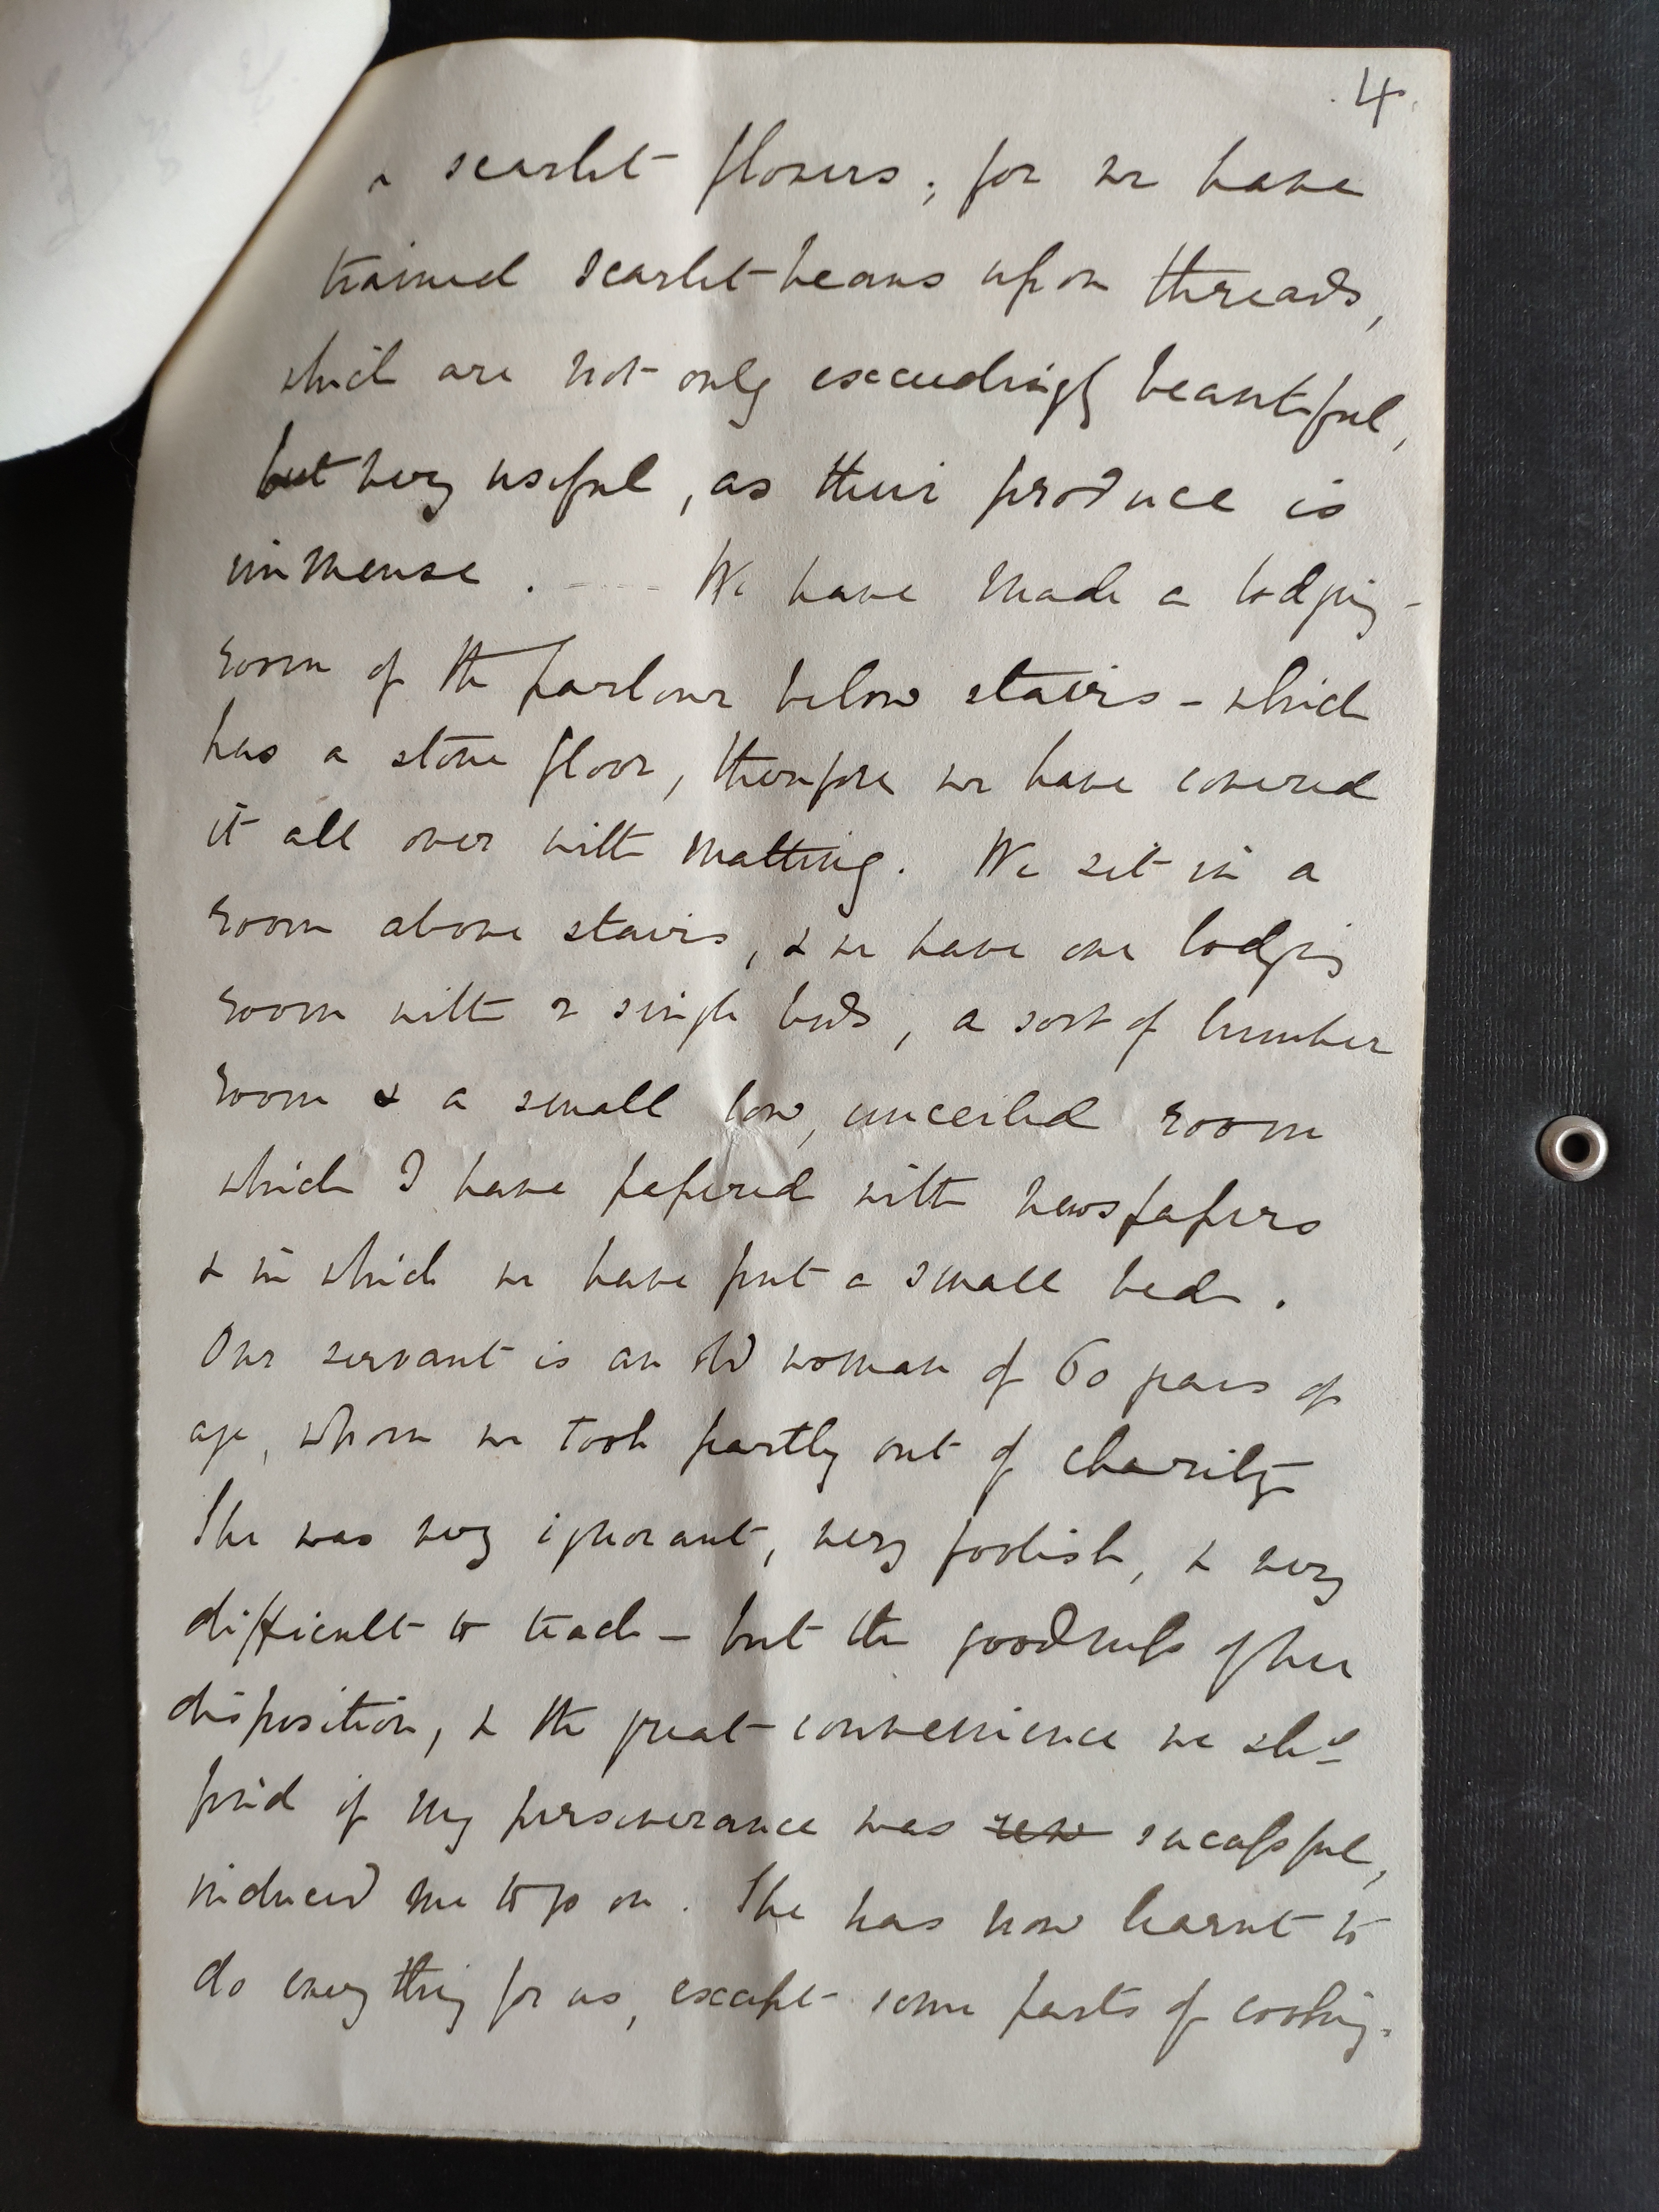 4.
& scarlet flowers; for we have
trained scarlet-beans upon threads,
which are not only exceedingly beautiful,
but very useful, as their produce is
immense. We have made a lodging-
room of the parlour below stairs - which
has a stone floor, therefore we have covered
it all over with matting. We sit in a
room above stairs, & we have one lodging
room with 2 single beds, a sort of lumber
room & a small low, unceiled room
which I have papered with newspapers
& in which we have put a small bed.
Our servant is an old woman of 60 years of
age, whom we took partly out of charity
She was very ignorant, very foolish, & very
difficult to teach - but the goodness of her
disposition, & the great convenience we shd
find if my perseverance was sucessful,
induced me to go on. She has now learnt to
do every thing for us, except some parts of cooking.